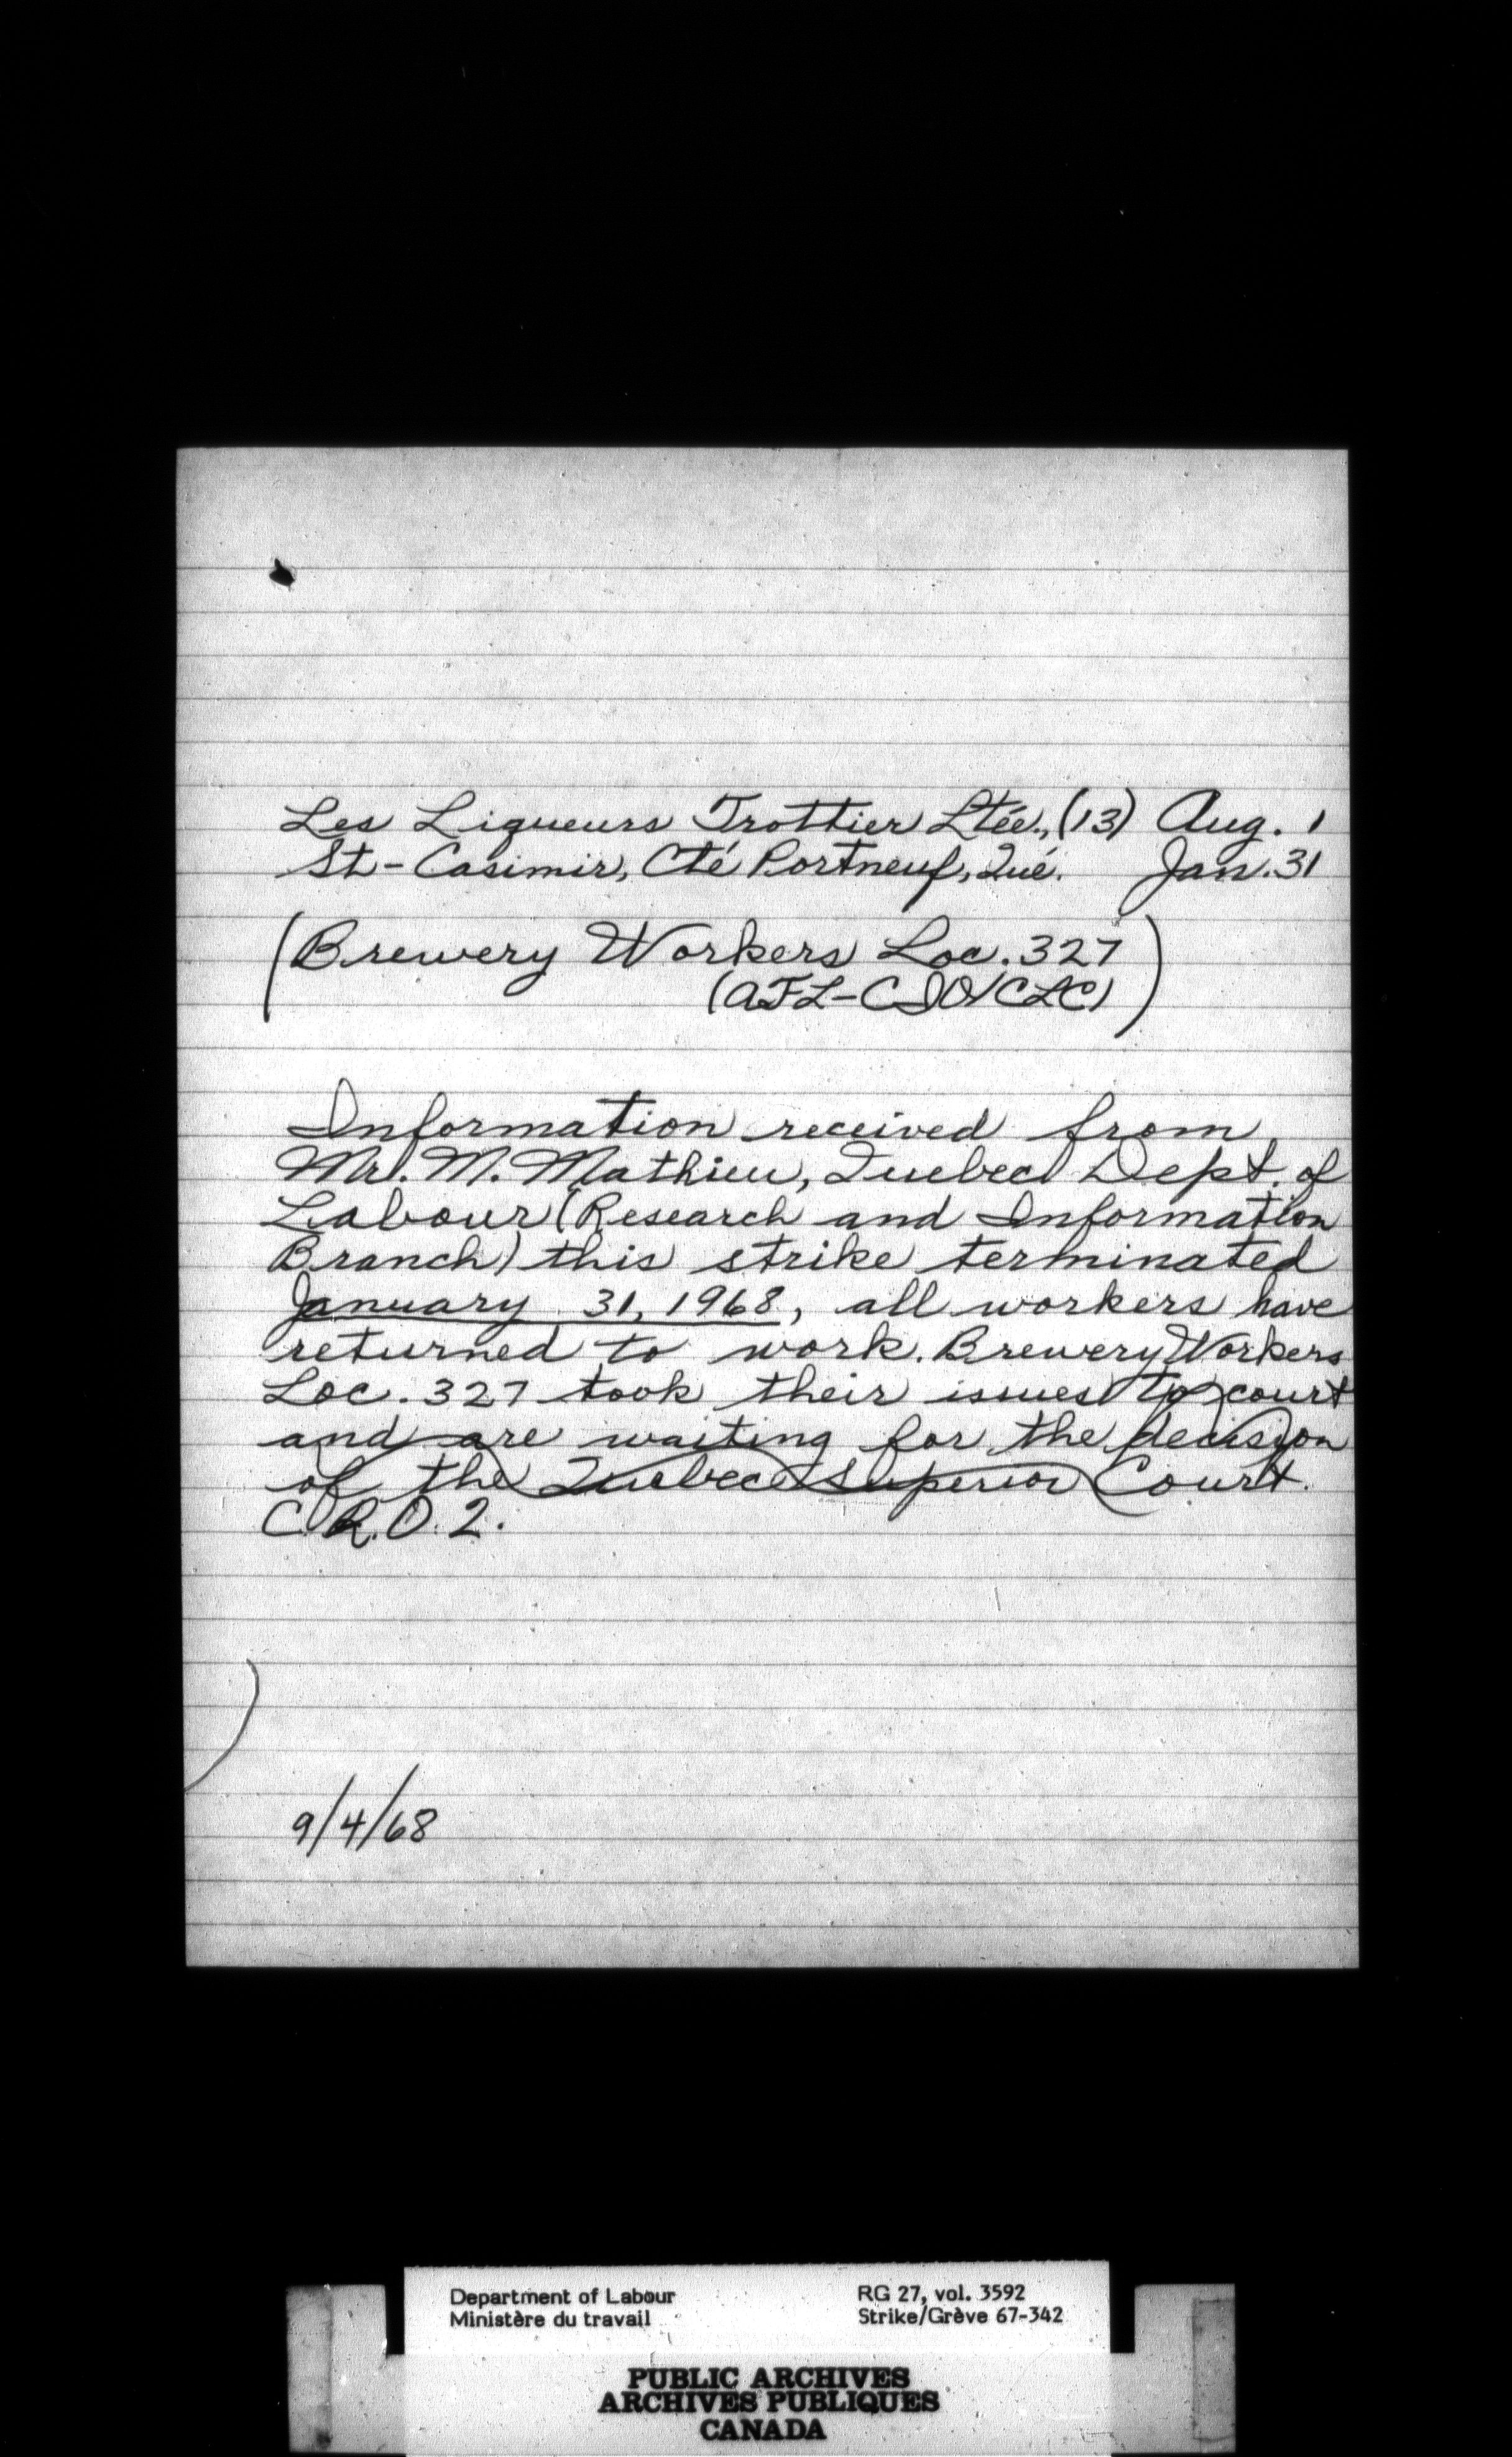 Les Liqueurs Trottier Ltée., (13) Aug. 1
St-Casimir, Cté Portneuf, Qué. Jan. 31
(Brewery Workers Loc. 327
(AFL-CIO/CLC))
Information received from
Mr. M. Mathieu, Quebec Dept. of
Labour (Research and Information
Branch) this strike terminated
January 31, 1968, all workers have
returned to work. Brewery Workers
Loc. 327 took their issues to court
and are waiting for the decision
of the Quebec Superior Court.
C.R.O.2.
9/4/68
Department of Labour RG 27, vol. 3592
Ministère du travail Strike/Grève 67-342
PUBLIC ARCHIVES
ARCHIVES PUBLIQUES
CANADA